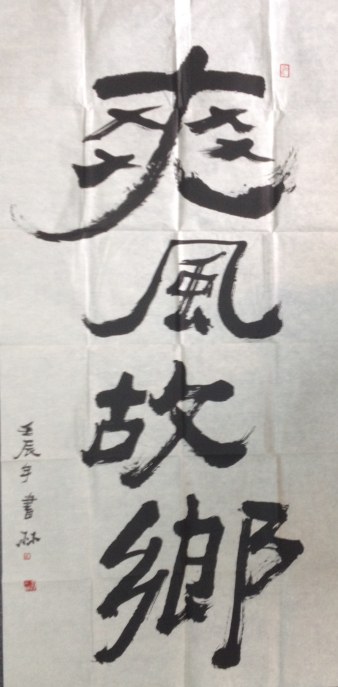 爽風故鄉
壬辰年書林